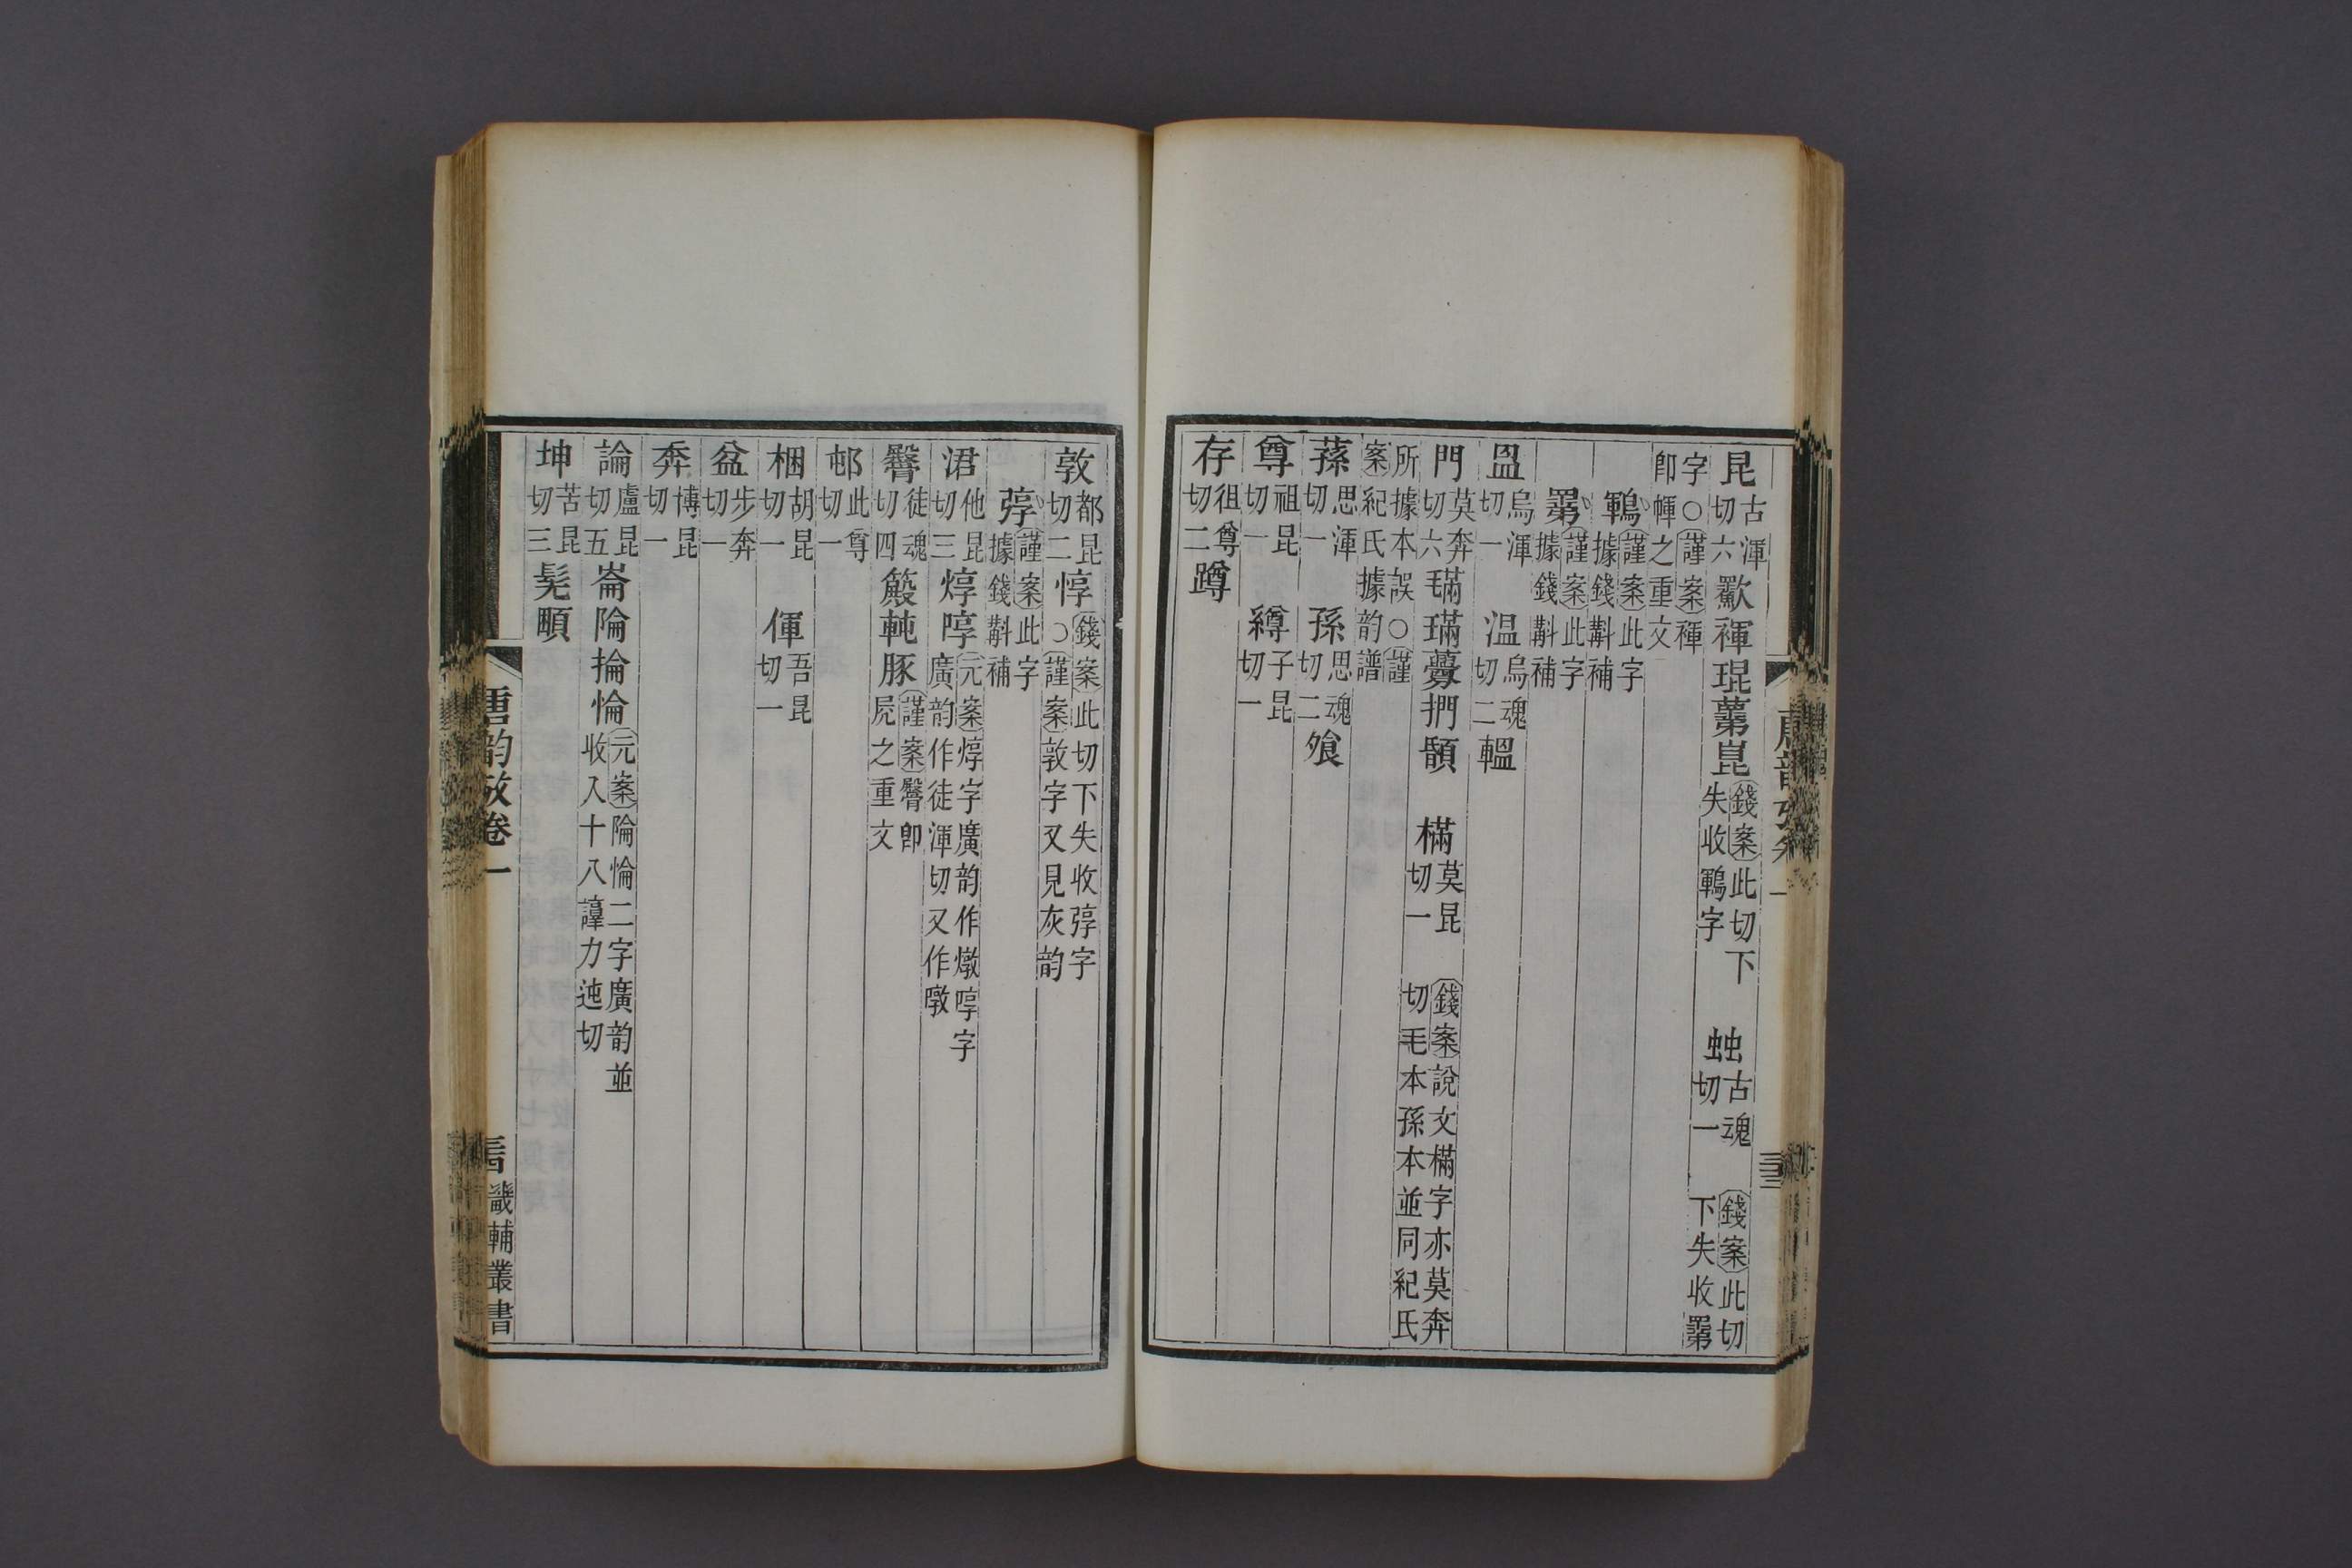 昆古渾切六歠褌琨䓝崑錢案此切下失收鶤字　䖵古魂切一　錢案此切下失收䍛
字○謹案褌卽㡓之重文
鶤謹案此字據錢斠補
䍛謹案此字據錢斠補
昷烏渾切一　温烏魂切二轀
門莫奔切六𣯩璊虋捫頣　樠莫昆切一　錢案說文樠字亦莫奔切毛本孫本並同紀氏
所據本誤○謹案紀氏據韵譜
蓀思渾切一　孫思魂切二飧
尊祖昆切一　繜子昆切一
存徂尊切二蹲
唐韵攷卷一
三三
敦都昆切二惇錢案此切下失收弴字○謹案敦字又見灰韵
弴謹案此字據錢斠補
涒他昆切三焞啍元案焞字廣韵作燉啍字廣韵作徒渾切又作暾
臀徒魂切四簸軘豚謹案臀卽㞘之重文
邨此尊切一
梱胡昆切一　㑮吾昆切一
盆步奔切一
奔博昆切一
論盧昆切五崙陯掄惀元案陯惀二字廣韵並收入十八諄力迍切
坤苦昆切三髡顐
唐韵攷卷一
畿輔叢書